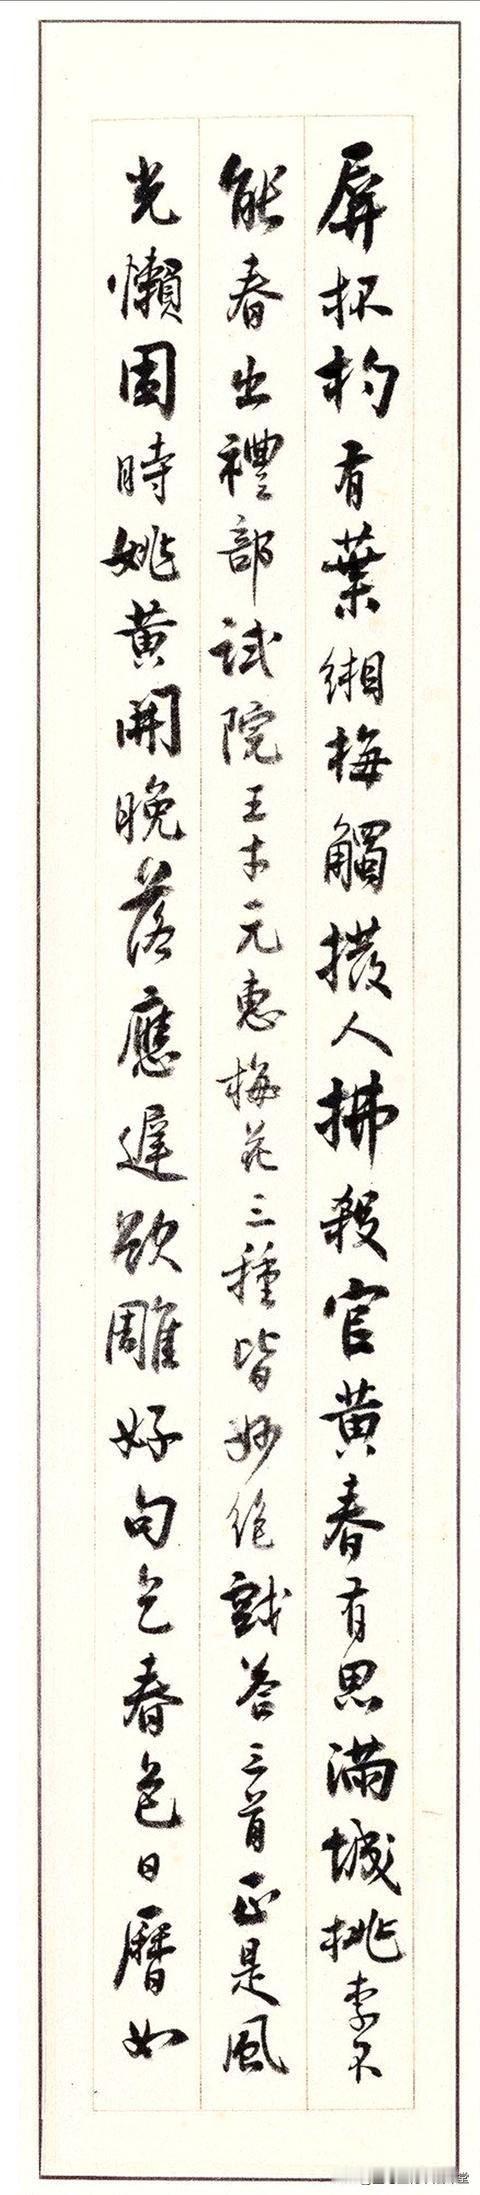 屏杯杓有葉緗梅觸撥人拂殺官黃春有思滿城桃李不
能春出禮部試院王才元惠梅花三種皆妙絕戲答三首正是風
光懶困時姚黃開晚落應遲欲雕好句乞春色日曆如
堂